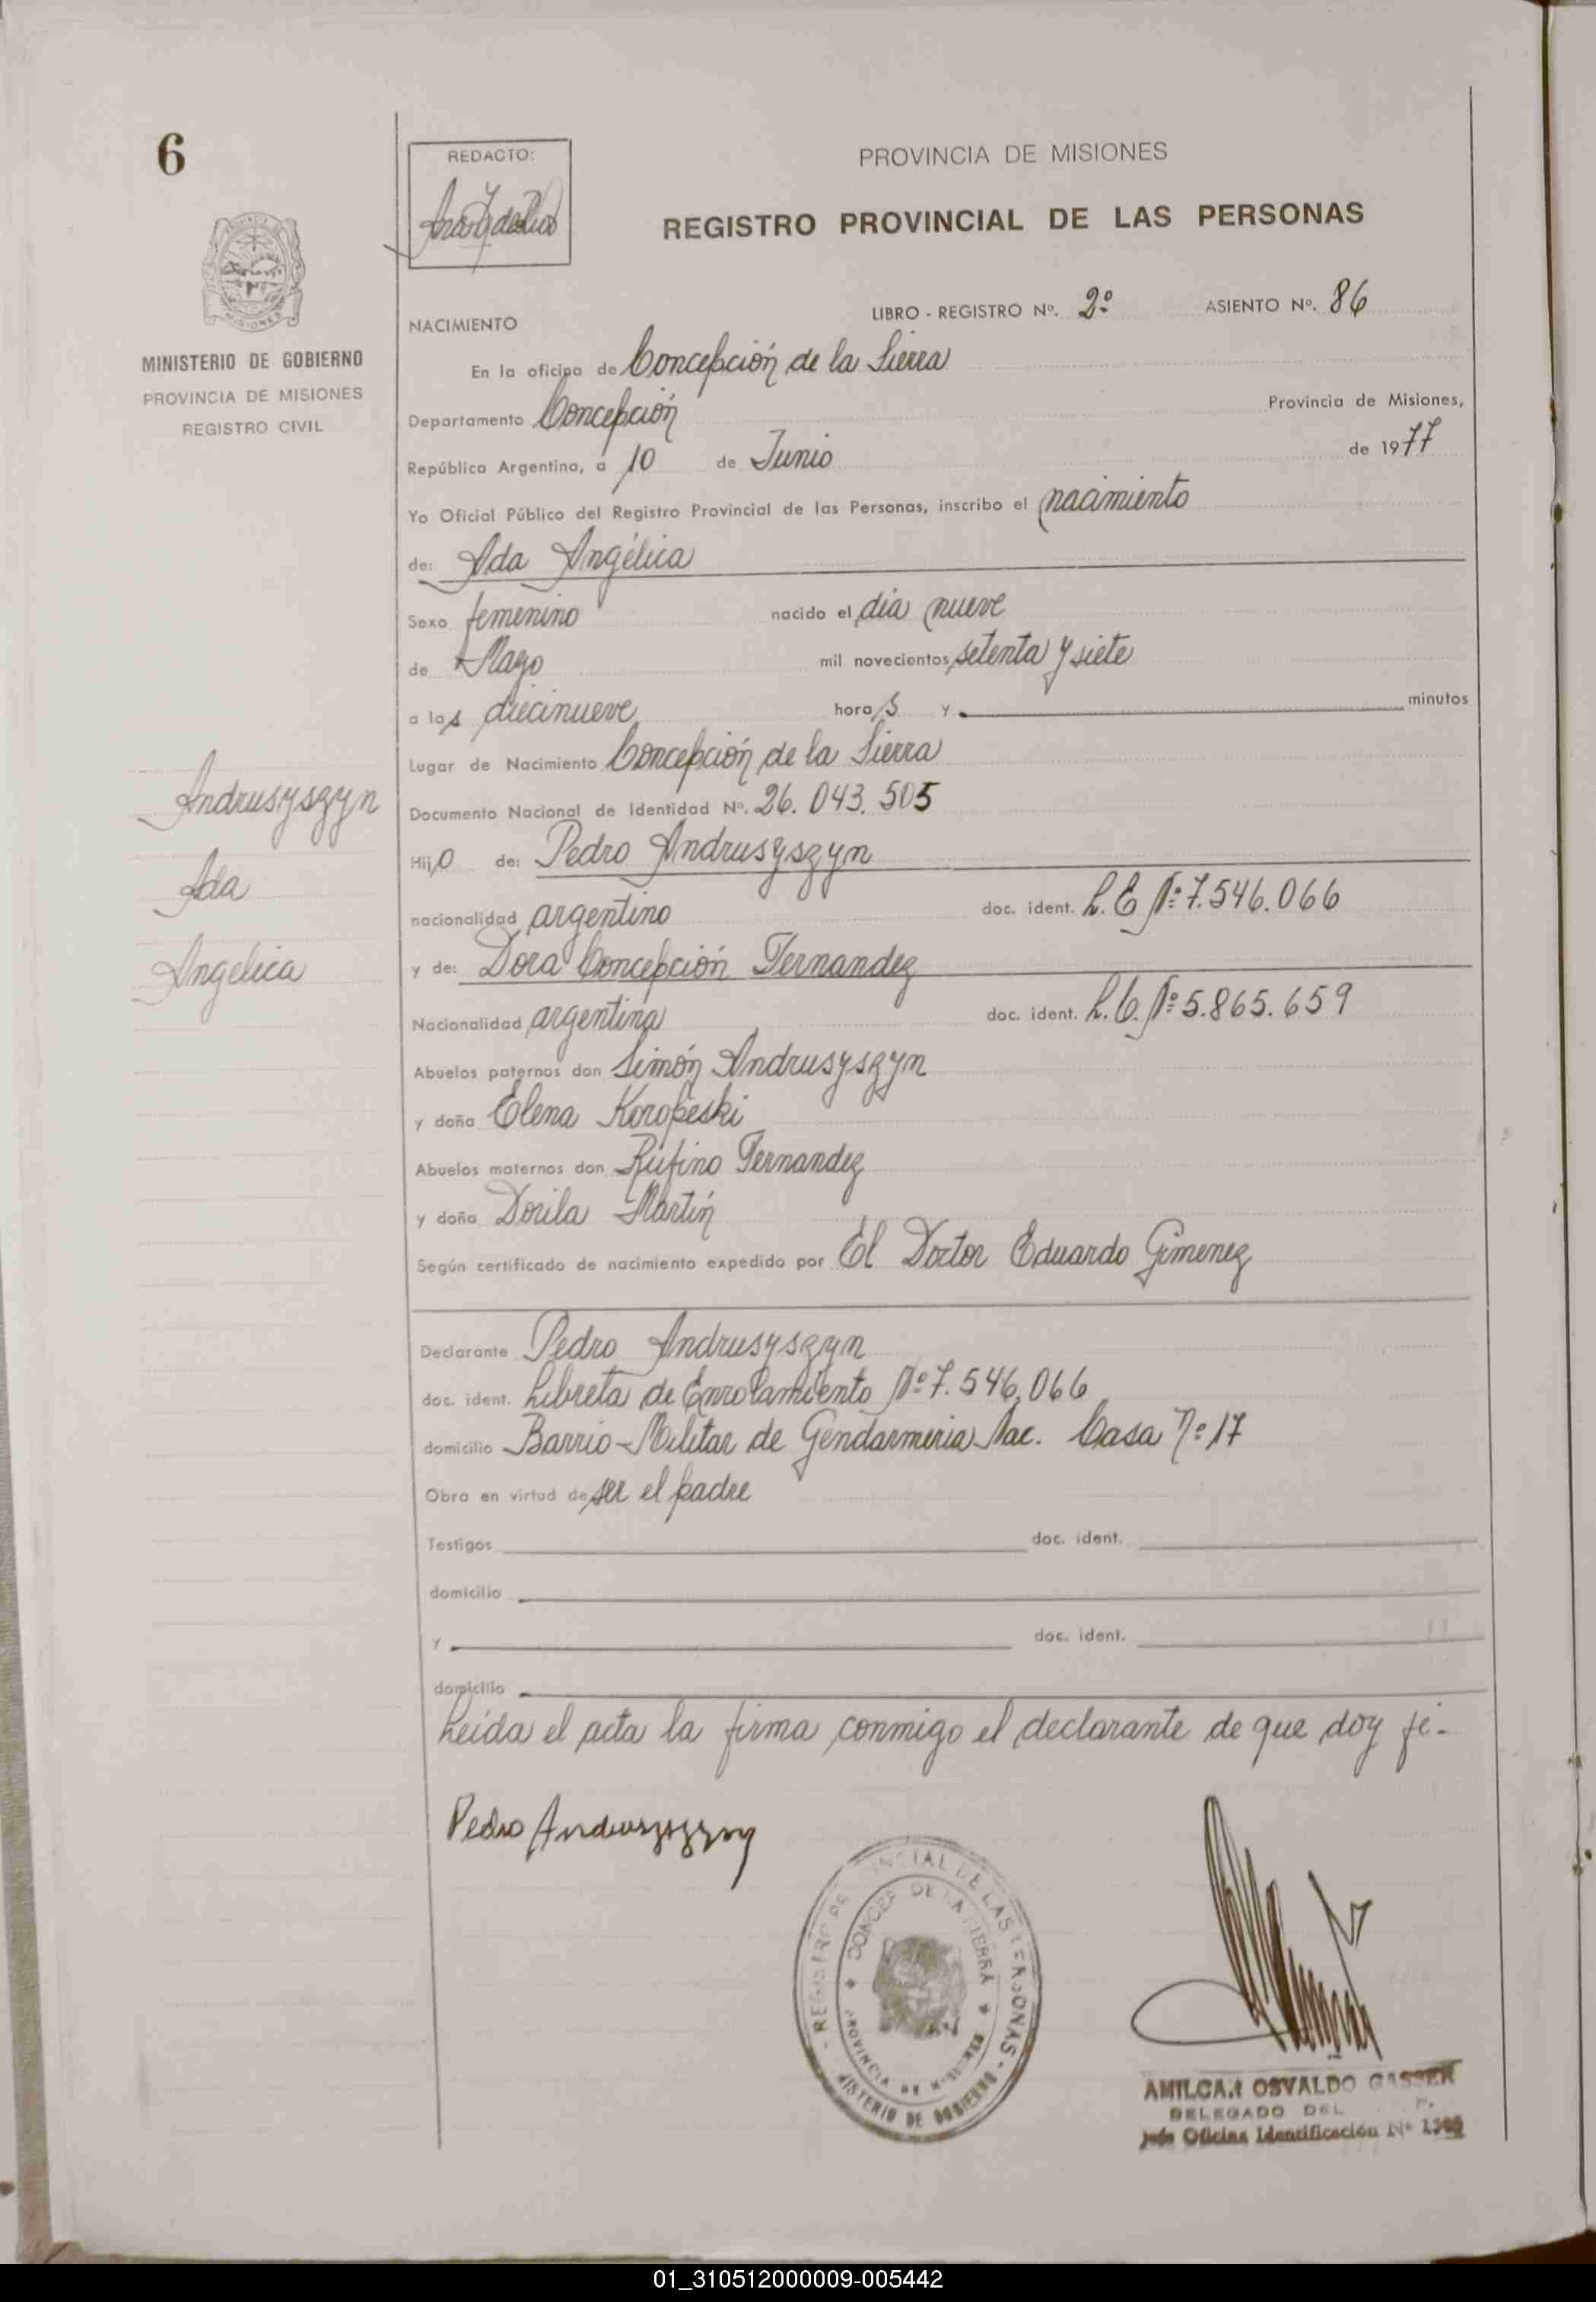 6
REDACTO:
PROVINCIA DE MISIONES
REGISTRO PROVINCIAL DE LAS PERSONAS
MINISTERIO DE GOBIERNO
PROVINCIA DE MISIONES
REGISTRO CIVIL
LIBRO - REGISTRO Nº. 2º ASIENTO Nº. 86
NACIMIENTO
En la oficina de Concepción de la Sierra
Departamento Concepción Provincia de Misiones,
República Argentina, a 10 de Junio de 1977
Yo Oficial Público del Registro Provincial de las Personas, inscribo el nacimiento
de: Ada Angélica
Sexo femenino nacido el día nueve
de Mayo mil novecientos setenta y siete
a las diecinueve horas y minutos
Lugar de Nacimiento Concepción de la Sierra
Documento Nacional de Identidad Nº. 26.043.505
Hijo de: Pedro Andrusyszyn
nacionalidad argentino doc. ident. L.E Nº 7.546.066
y de: Dora Concepción Fernandez
Nacionalidad argentina doc. ident. L.C. Nº 5.865.659
Abuelos paternos don Simón Andrusyszyn
y doña Elena Koropeski
Abuelos maternos don Rufino Fernandez
y doña Dorila Martín
Según certificado de nacimiento expedido por El Doctor Eduardo Gimenez
Andrusyszyn
Ada
Angelica
Declarante Pedro Andrusyszyn
doc. ident. Libreta de Enrolamiento Nº 7.546,066
domicilio Barrio Militar de Gendarmeria Nac. Casa Nº 17
Obra en virtud de ser el padre
Testigos doc. ident.
domicilio
y doc. ident.
domicilio
Leída el acta la firma conmigo el declarante de que doy fé.
Pedro Andrusyszyn
CONCEP. DE LA SIERRA
PROVINCIA DE MISIONES
AMILCAR OSVALDO GASSER
DELEGADO DEL
Jefe Oficina Identificación Nº
01_310512000009-005442